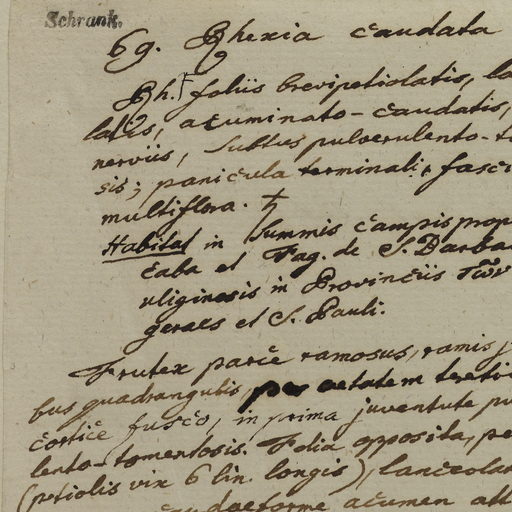 Schrank.
69. Rhexia caudata
Rh. foliis brevipetiolatis, la
latis, acuminato-caudatis,
nerviis, subtus pulverulento-to
sis; panicula terminali, fasci
multiflora. ♄
Habitat in summis campis prop
caba et Faz. de S. Barba
uliginosis in Provinciis
geraes et S. Pauli.
Frutex parce ramosus, ramis j
bus quadrangulis, per aetatem tereti
cortice fusco, in prima juventute pu
lento-tomentosis. Folia opposita, pe
(petiolis vix 6 lin. longis), lanceola
acumen att